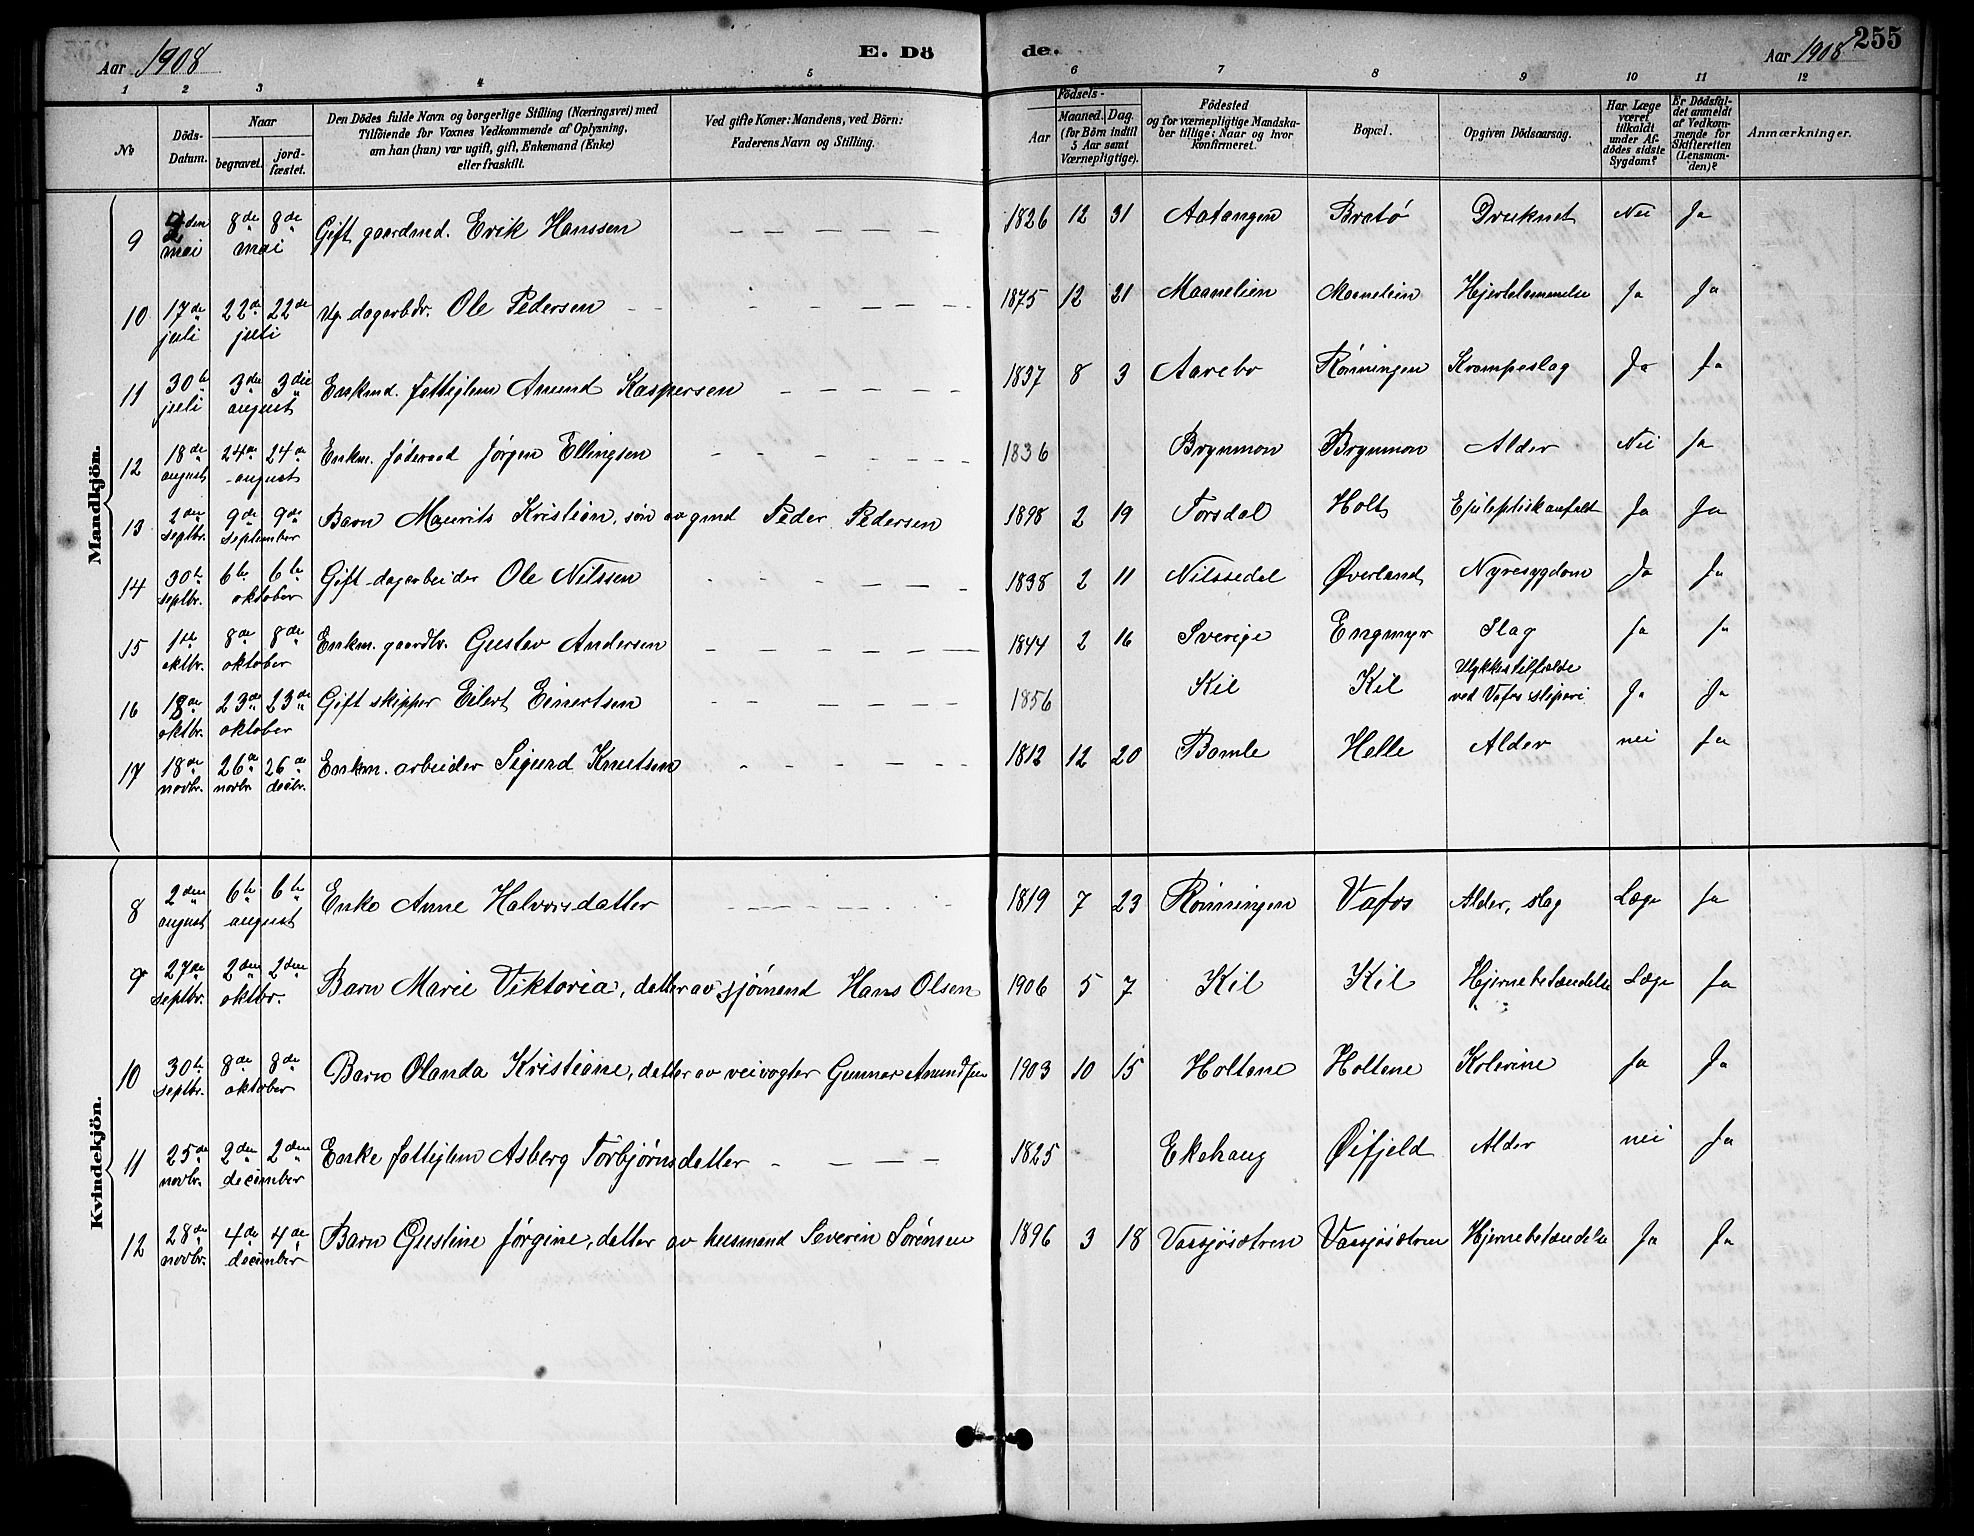 Aar 1908
E. Dö
de.
Aar 1908
255
1 2 3 4 5 6 7 8 9 10 11 12
No
Döds-Datum.
Naar
begravet.
jord-fæstet.
Den Dödes fulde Navn og borgerlige Stilling (Næringsvei) med
Tilföiende for Voxnes Vedkommende af Oplysning,
om han (hun) var ugift, gift, Enkemand (Enke)
eller fraskilt.
Ved gifte Koner: Mandens, ved Börn:
Faderens Navn og Stilling.
Födsels-
Aar
Maaned. Dag.
(for Börn indtil
5 Aar samt
Værnepligtige).
Födested
og for værnepligtige Mandska-
ber tillige: Naar og hvor
konfirmeret.
Bopæl.
Opgiven Dödsaarsag.
Har Læge
været
tilkaldt
under Af-
dödes sidste
Sygdom?
Er Dödsfal-
det anmeldt
af Vedkom-
mende for
Skifteretten
(Lensman-
den)?
Anmærkninger.
Mandkjön.
9 2den mai 8de 8de mai Gift gaardmd. Erik Hanssen 1826 12 31 Aatangen Bratø Druknet Nei Ja
10 17de juli 22de 22de juli Ug. dagarbdr. Ole Pedersen 1875 12 21 Maanelien Maanelien Hjertelammelse Ja Ja
11 30te juli 3die 3die august Enkmd. fattiglem Amund Kaspersen 1837 8 3 Aarebo Rønningen Krampeslag Ja Ja
12 18de august 24de 24de august Enkm. føderaad Jørgen Ellingsen 1836 Brynmon Brynmon Alder Nei Ja
13 2den septbr. 9de 9de september Barn Maurits Kristian, søn av gmd Peder Pedersen 1898 2 19 Torsdal Holt Epileptisk anfald Ja Ja
14 30te septbr. 6te 6te oktober Gift dagarbeider Ole Nilssen 1838 2 11 Nilssedal Øverland Nyresygdom Ja Ja
15 1ste oktbr. 8de 8de oktober Enkm. gaardbr. Gustav Andersen 1844 2 16 Sverige Engmyr Slag Ja Ja
16 18de oktbr. 23de 23de oktober Gift skipper Eilert Einertsen 1856 Kil Kil Ulykkestilfælde ved Vafos sliperi Ja Ja
17 18de novbr. 26de novbr. 26de decbr. Enkm. arbeider Sigurd Knutsen 1812 12 20 Bamle Helle Alder nei Ja
Kvindekjön.
8 2den august 6te 6te august Enke Anne Halvorsdatter 1819 7 23 Rønningen Vafos Alder, slag Læge Ja
9 27de septbr. 2den 2den oktbr. Barn Marie Viktoria, datter av sjømand Hans Olsen 1906 5 7 Kil Kil Hjernebetændelse Læge Ja
10 30te septbr. 8de 8de oktober Barn Olanda Kristiane, datter av veivogter Gunnar Amundsen 1903 10 15 Holtane Holtene Kolerine Ja Ja
11 25de novbr. 2den 2den december Enke fattiglem Asberg Torbjørnsdatter 1825 Ekehaug Øifjeld Alder nei Ja
12 28de novbr. 4de 4de december Barn Gustine Jørgine, datter av husmand Severin Sørensen 1896 3 18 Vassjøsætren Vassjøsætren Hjernebetændelse Ja Ja